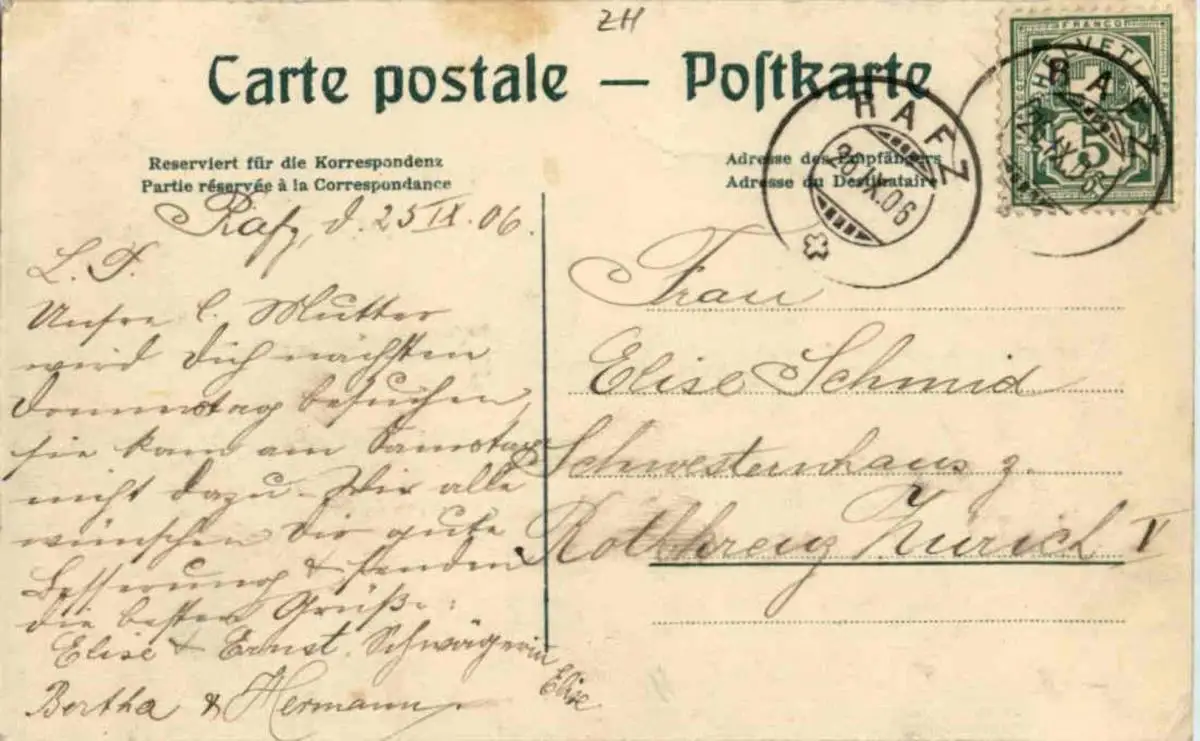 ZH
Carte postale — Postkarte
Reserviert für die Korrespondenz
Partie réservée à la Correspondance
Adresse des Empfängers
Adresse du Destinataire
FRANCO
HELVETIA
5
RAFZ
IX.06
RAFZ
IX.06
Rafz, d. 25 IX. 06.
L.
Unsre l. Mutter
wird Dich nächsten
Donnerstag besuchen,
sie kam am Samstag
nicht dazu. Wir alle
wünschen Dir gute
Besserung & senden
die besten Grüße:
Elise & Ernst. Schwägerin
Elise
Bertha & Hermann.
Frau
Elise Schmid
Schwesternhaus z.
Rothkreuz Zürich V